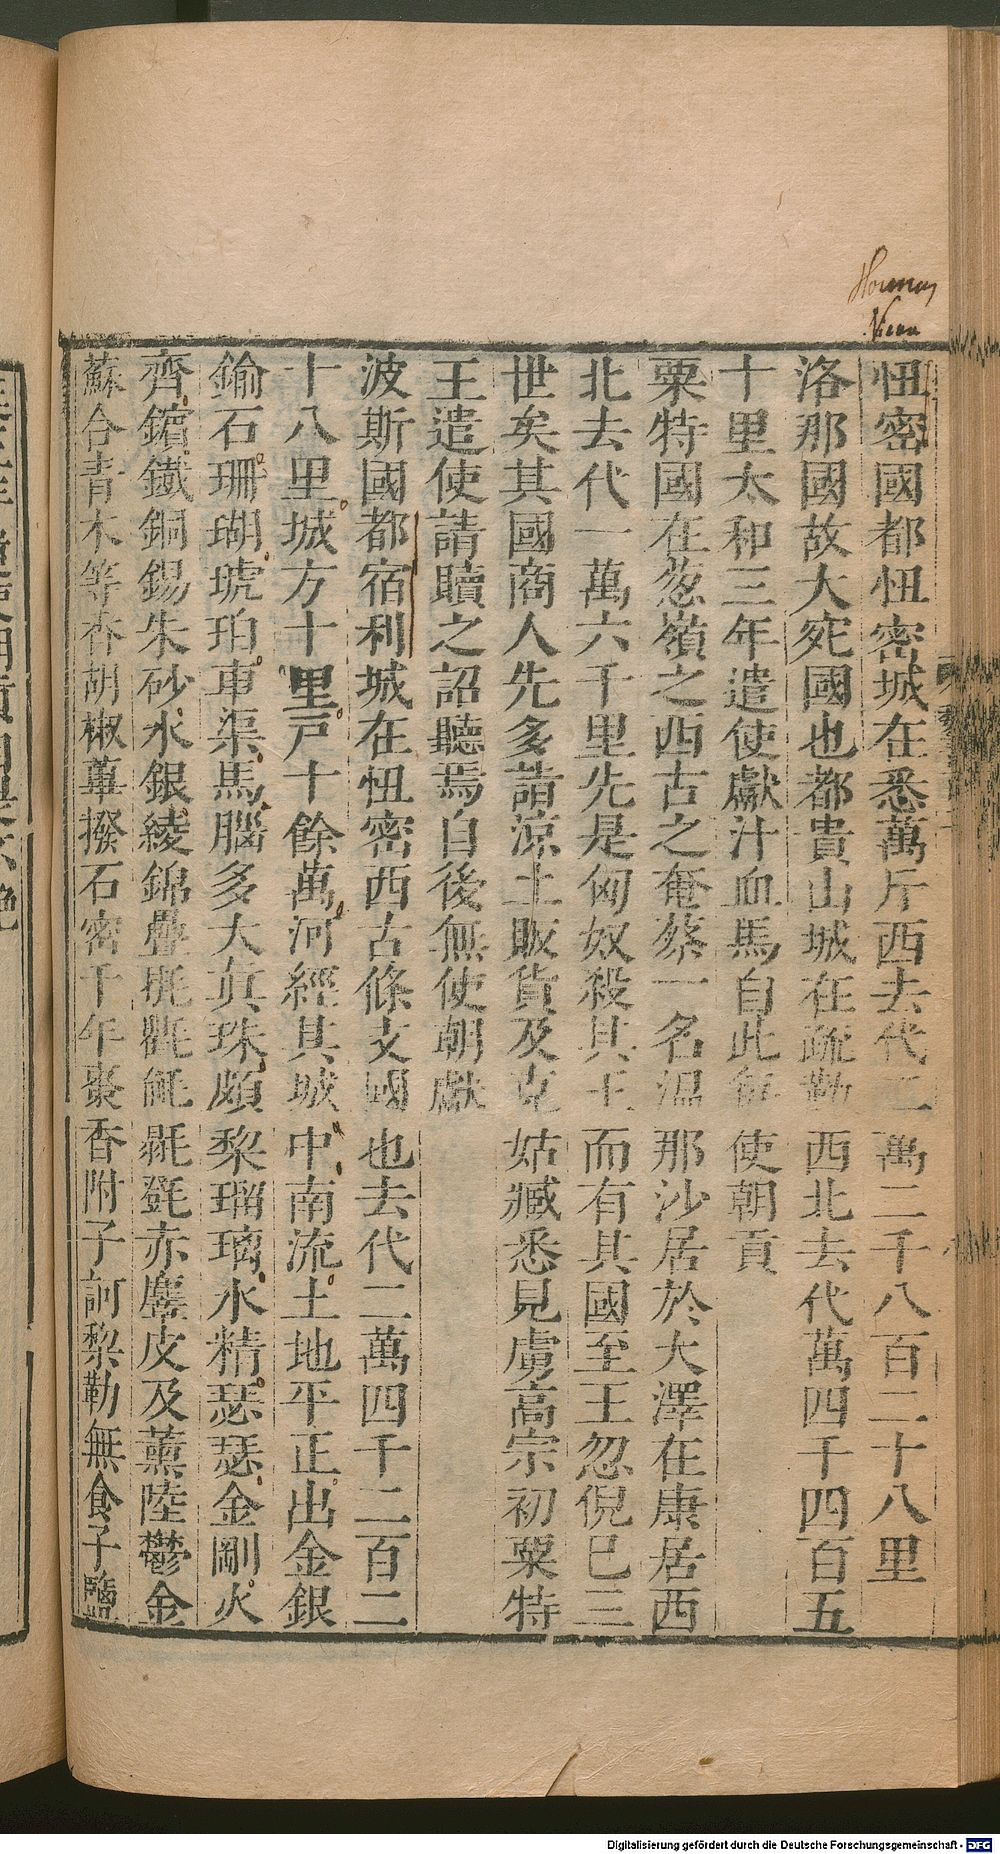 忸密國都忸密城在悉萬斤西去代二萬二千八百二十八里
洛那國故大宛國也都貴山城在疏勒西北去代萬四千四百五
十里太和三年遣使獻汁血馬自此每使朝貢
粟特國在葱嶺之西古之奄蔡一名溫那沙居於大澤在康居西
北去代一萬六千里先是匈奴殺其王而有其國至王忽倪已三
世矣其國商人先多詣涼土販貨及克姑臧悉見虜高宗初粟特
王遣使請贖之詔聽焉自後無使朝獻
波斯國都宿利城在忸密西古條支國也去代二萬四千二百二
十八里城方十里戸十餘萬河經其城中南流土地平正出金銀
鍮石珊瑚琥珀車渠馬腦多大真珠頗黎瑠璃水精瑟瑟金剛火
齊鑌鐵銅錫朱砂水銀綾錦疊毼氍毹毾㲪赤麞皮及薰陸鬱金
蘇合青木等香胡椒蓽撥石密千年棗香附子訶黎勒無食子鹽
Digitalisierung gefördert durch die Deutsche Forschungsgemeinschaft - DFG